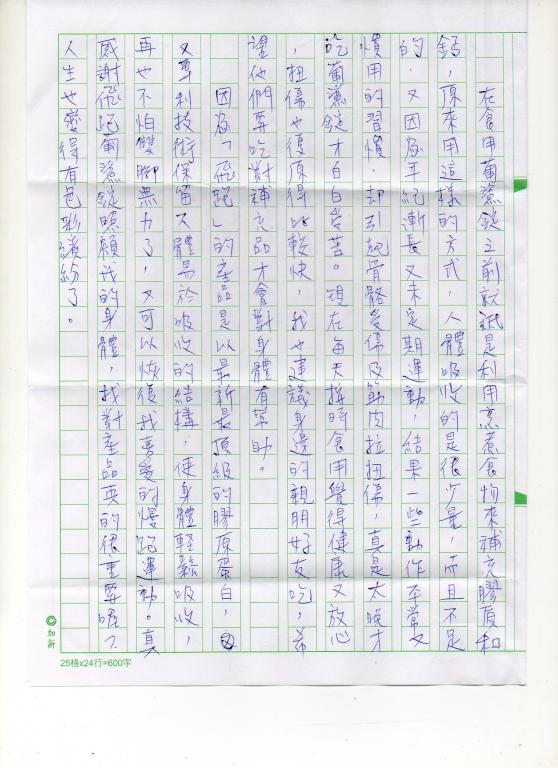 在食用葡蔘錠之前就祇是利用烹煮食物來補充膠原和
鈣，原來用這樣的方式，人體吸收的是很少量，而且不足
的，又因為年紀漸長又未定期運動，結果一些動作平常又
慣用的習慣，却引起骨骼受傷及筋肉拉扭傷，真是太晚才
吃葡蔘錠才白白受苦。現在每天按時食用覺得健康又放心
，扭傷也復原得比較快，我也建議身邊的親朋好友吃，希
望他們要吃對補充品才會對身體有幫助。
因為「飛跑」的產品是以最新最頂級的膠原蛋白，
又專利技術保留人體易於吸收的結構，使身體輕鬆吸收，
再也不怕雙腳無力了，又可以恢復我喜愛的慢跑運動。真
感謝飛跑葡蔘錠照顧我的身體，找對產品真的很重要喔？
人生也變得有色彩繽紛了。
加新
25格x24行=600字